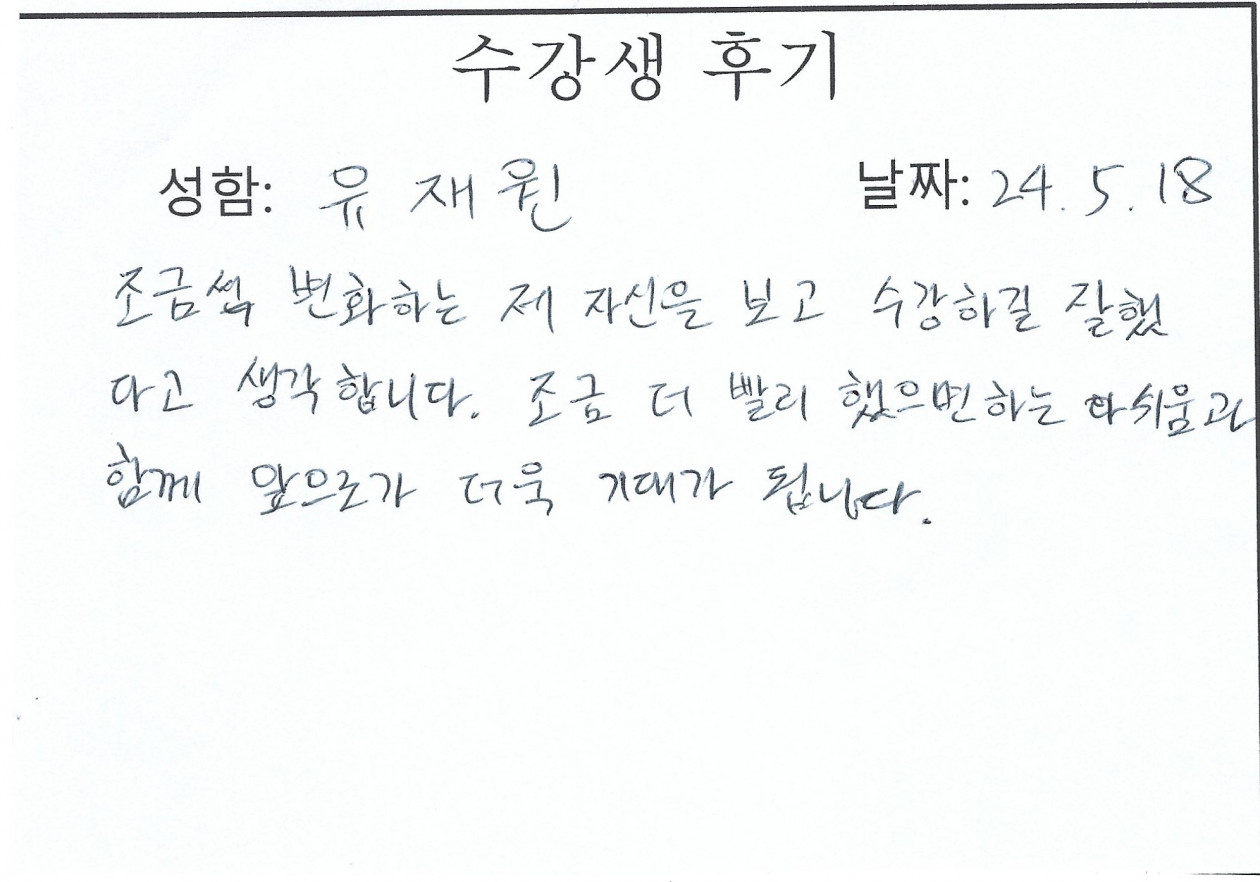 수강생 후기
성함: 유재원 날짜: 24. 5. 18
조금씩 변화하는 제 자신을 보고 수강하길 잘했
다고 생각합니다. 조금 더 빨리 했으면하는 아쉬움과
함께 앞으로가 더욱 기대가 됩니다.